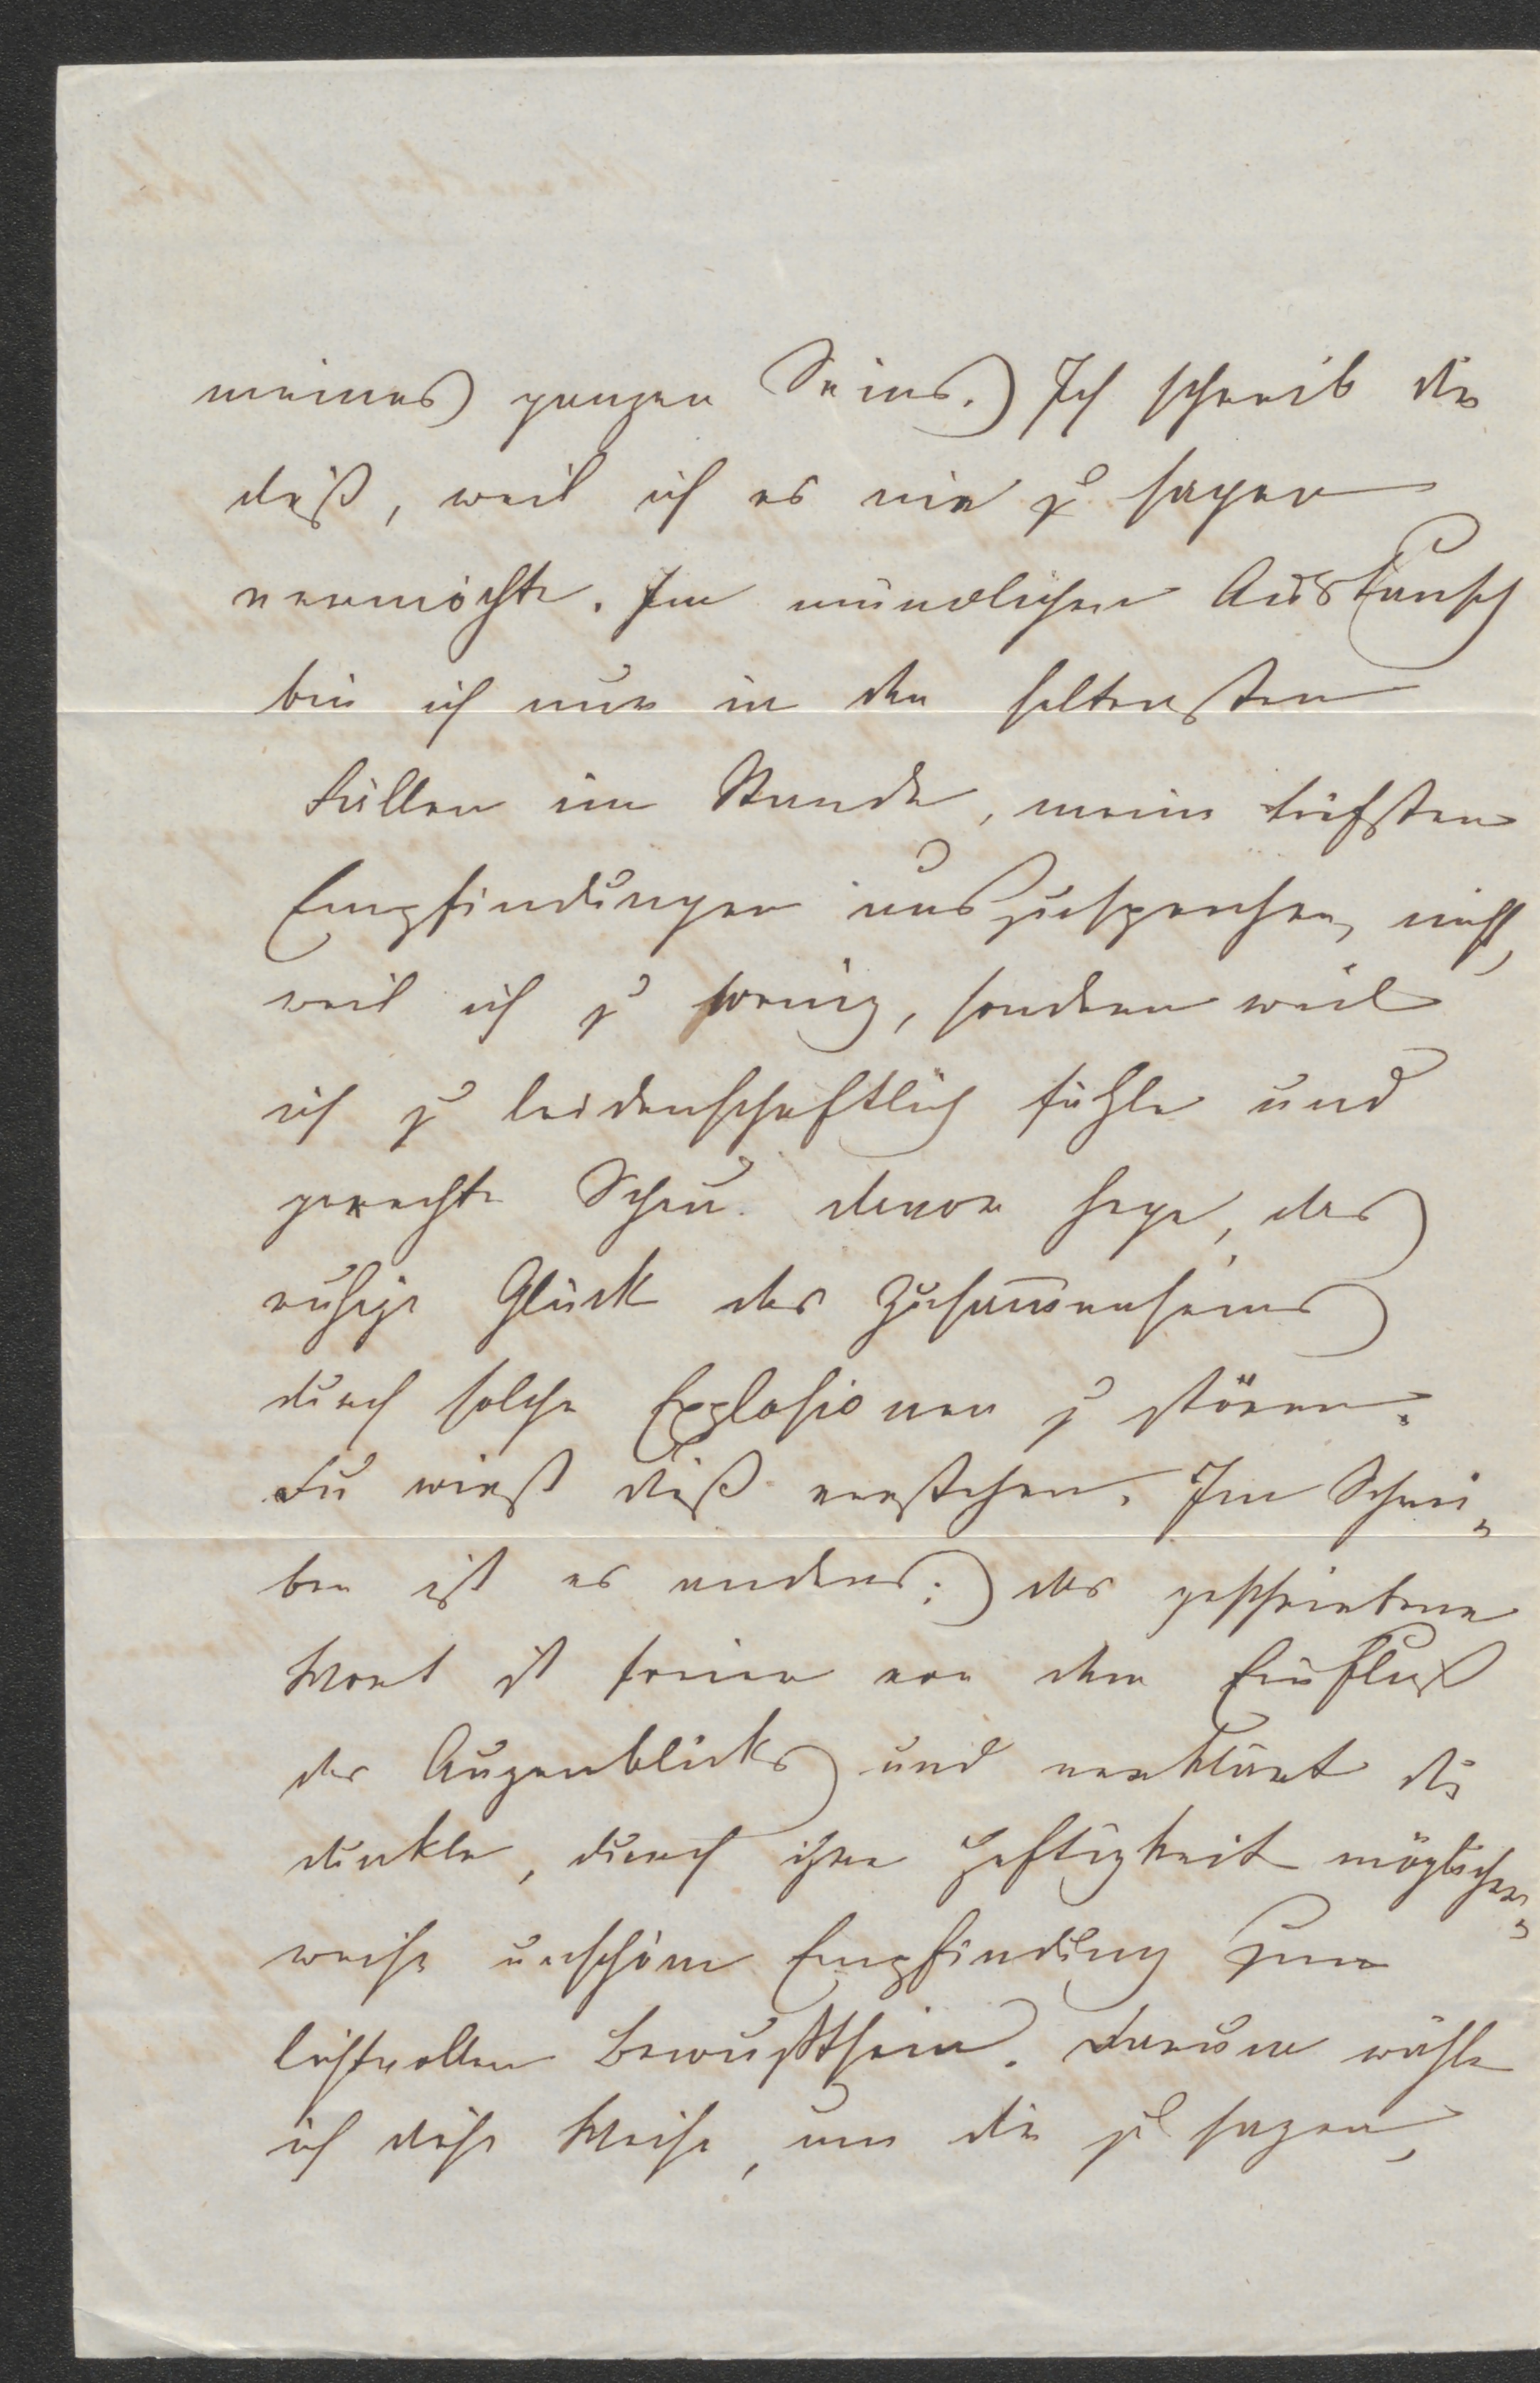 meines ganzen Seins. Ich schreib dir
dieß, weil ich es nie zu sagen
vermöchte. Im mündlichen Austausch
bin ich nur in den seltensten
Fällen im Stande, meine tiefsten
Empfindungen auszusprechen, nicht,
weil ich zu wenig, sondern weil
ich zu leidenschaftlich fühle und
gerechte Scheu davor hege, das
ruhige Glück des Zusam̅enseins
durch solche Explosionen zu stören.
Du wirst dieß verstehen. Im Schrei-
ben ist es anders: das geschriebene
Wort ist freier von dem Einfluß
des Augenblicks und verklärt die
dunkle, durch ihre Heftigkeit möglicher-
weise unschöne Empfindung zum
lichtvollen Bewußtsein. Darum wähle
ich diese Weise, um dir zu sagen,